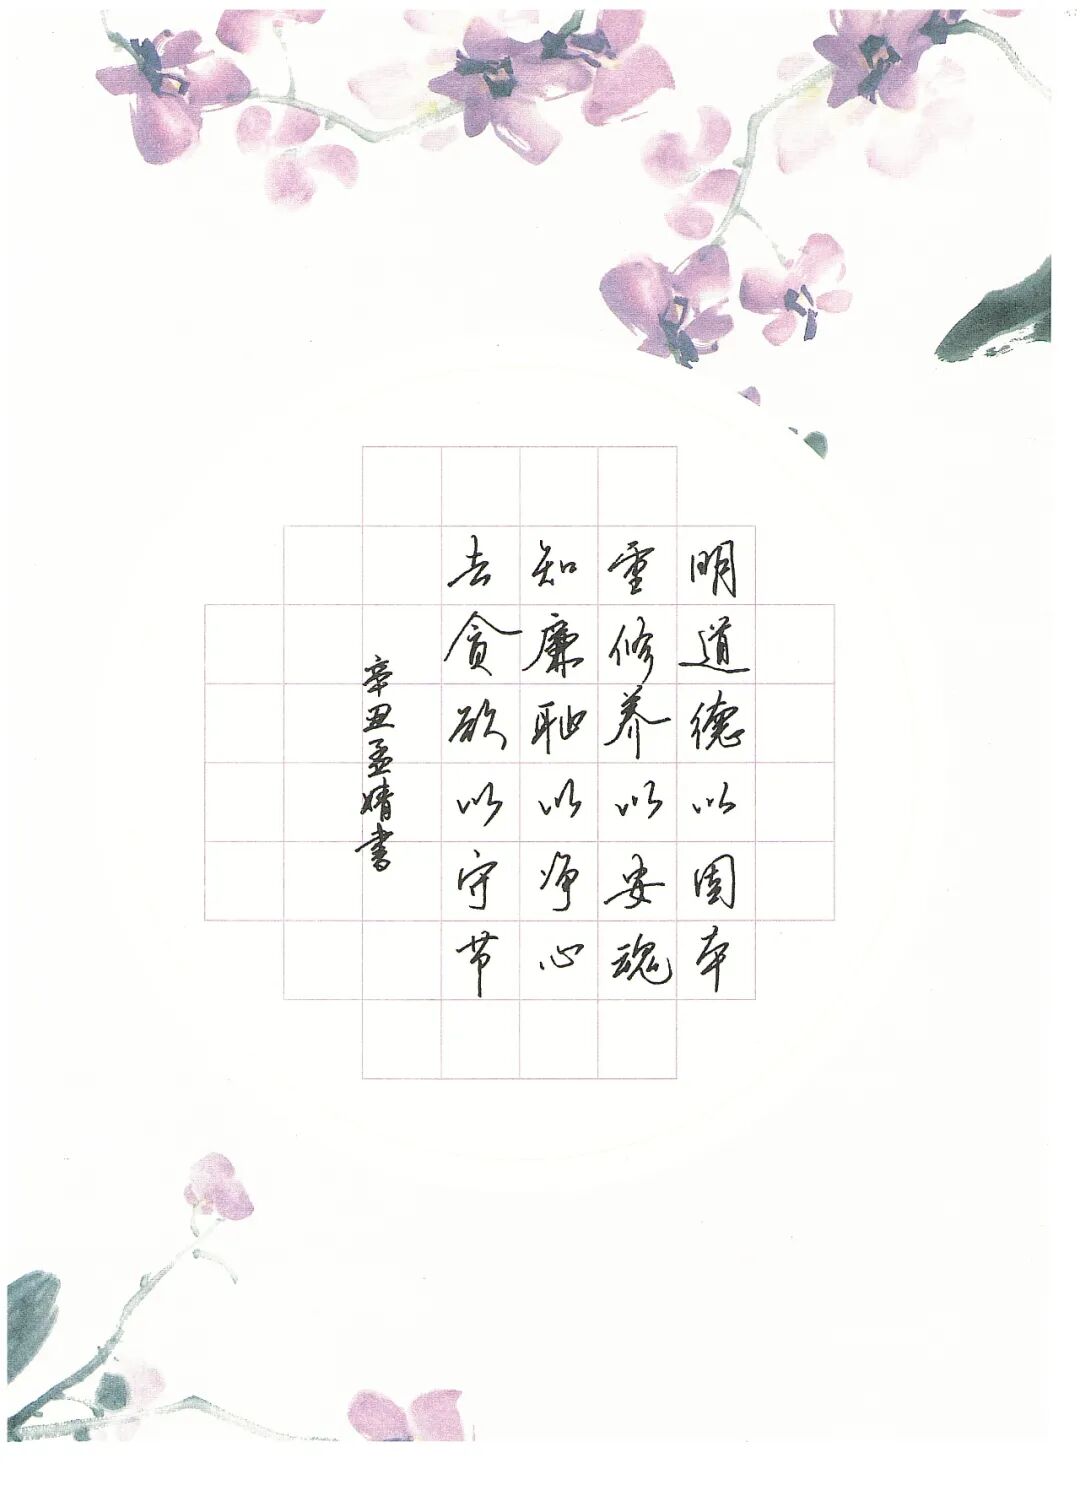 明道德以固本
重修养以安魂
知廉耻以净心
去贪欲以守节
辛丑孟婧书